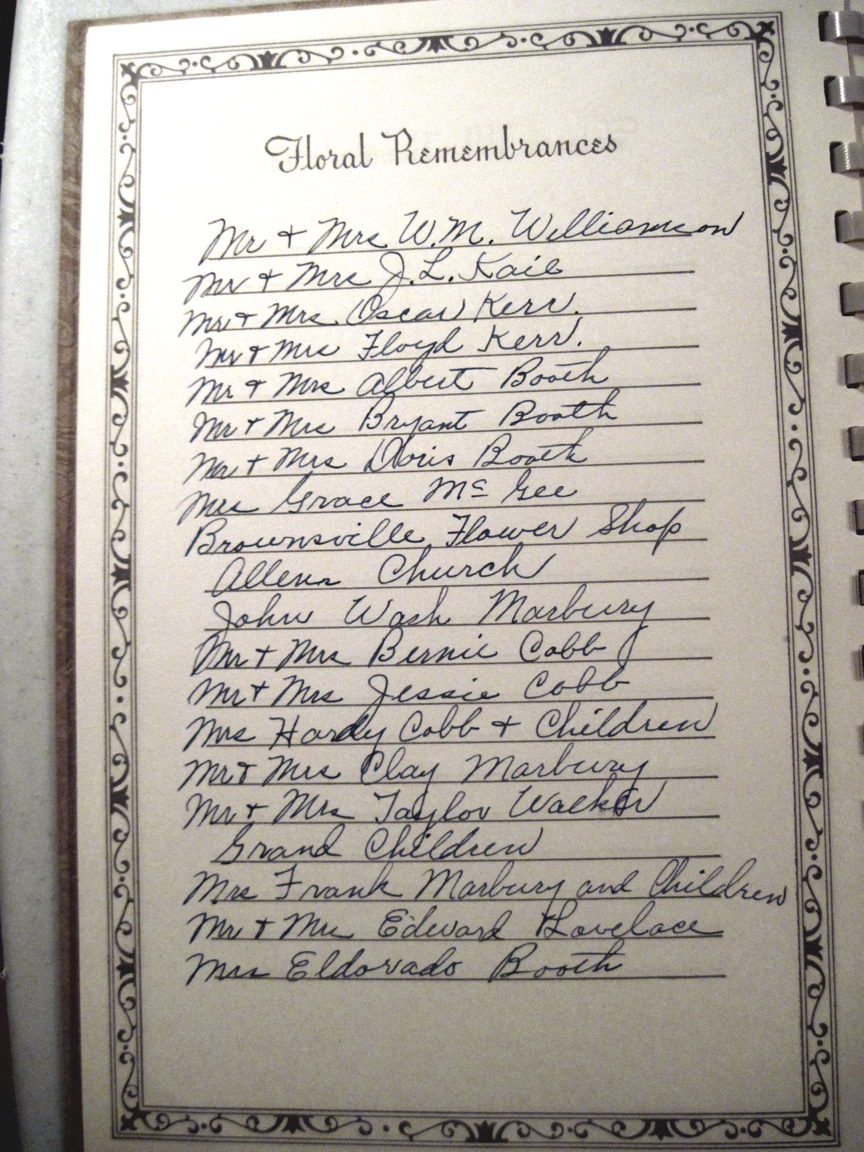 Floral Remembrances
Mr + Mrs W.M. Williamson
Mr + Mrs J.L. Kail
Mr + Mrs (Oscar) Kerr.
Mr + Mrs Floyd Kerr.
Mr + Mrs Albert Booth
Mr + Mrs Bryant Booth
Mr + Mrs Doris Booth
Mrs Grace Mc Gee
Brownsville Flower Shop
Allens Church
John Wash Marbury
Mr + Mrs Bernie Cobb
Mr + Mrs Jessie Cobb
Mrs Hardy Cobb + Children
Mr + Mrs Clay Marbury
Mr + Mrs Taylor Walker
Grand Children
Mrs Frank Marbury and Children
Mr + Mrs Edward Lovelace
Mrs Eldorado Booth